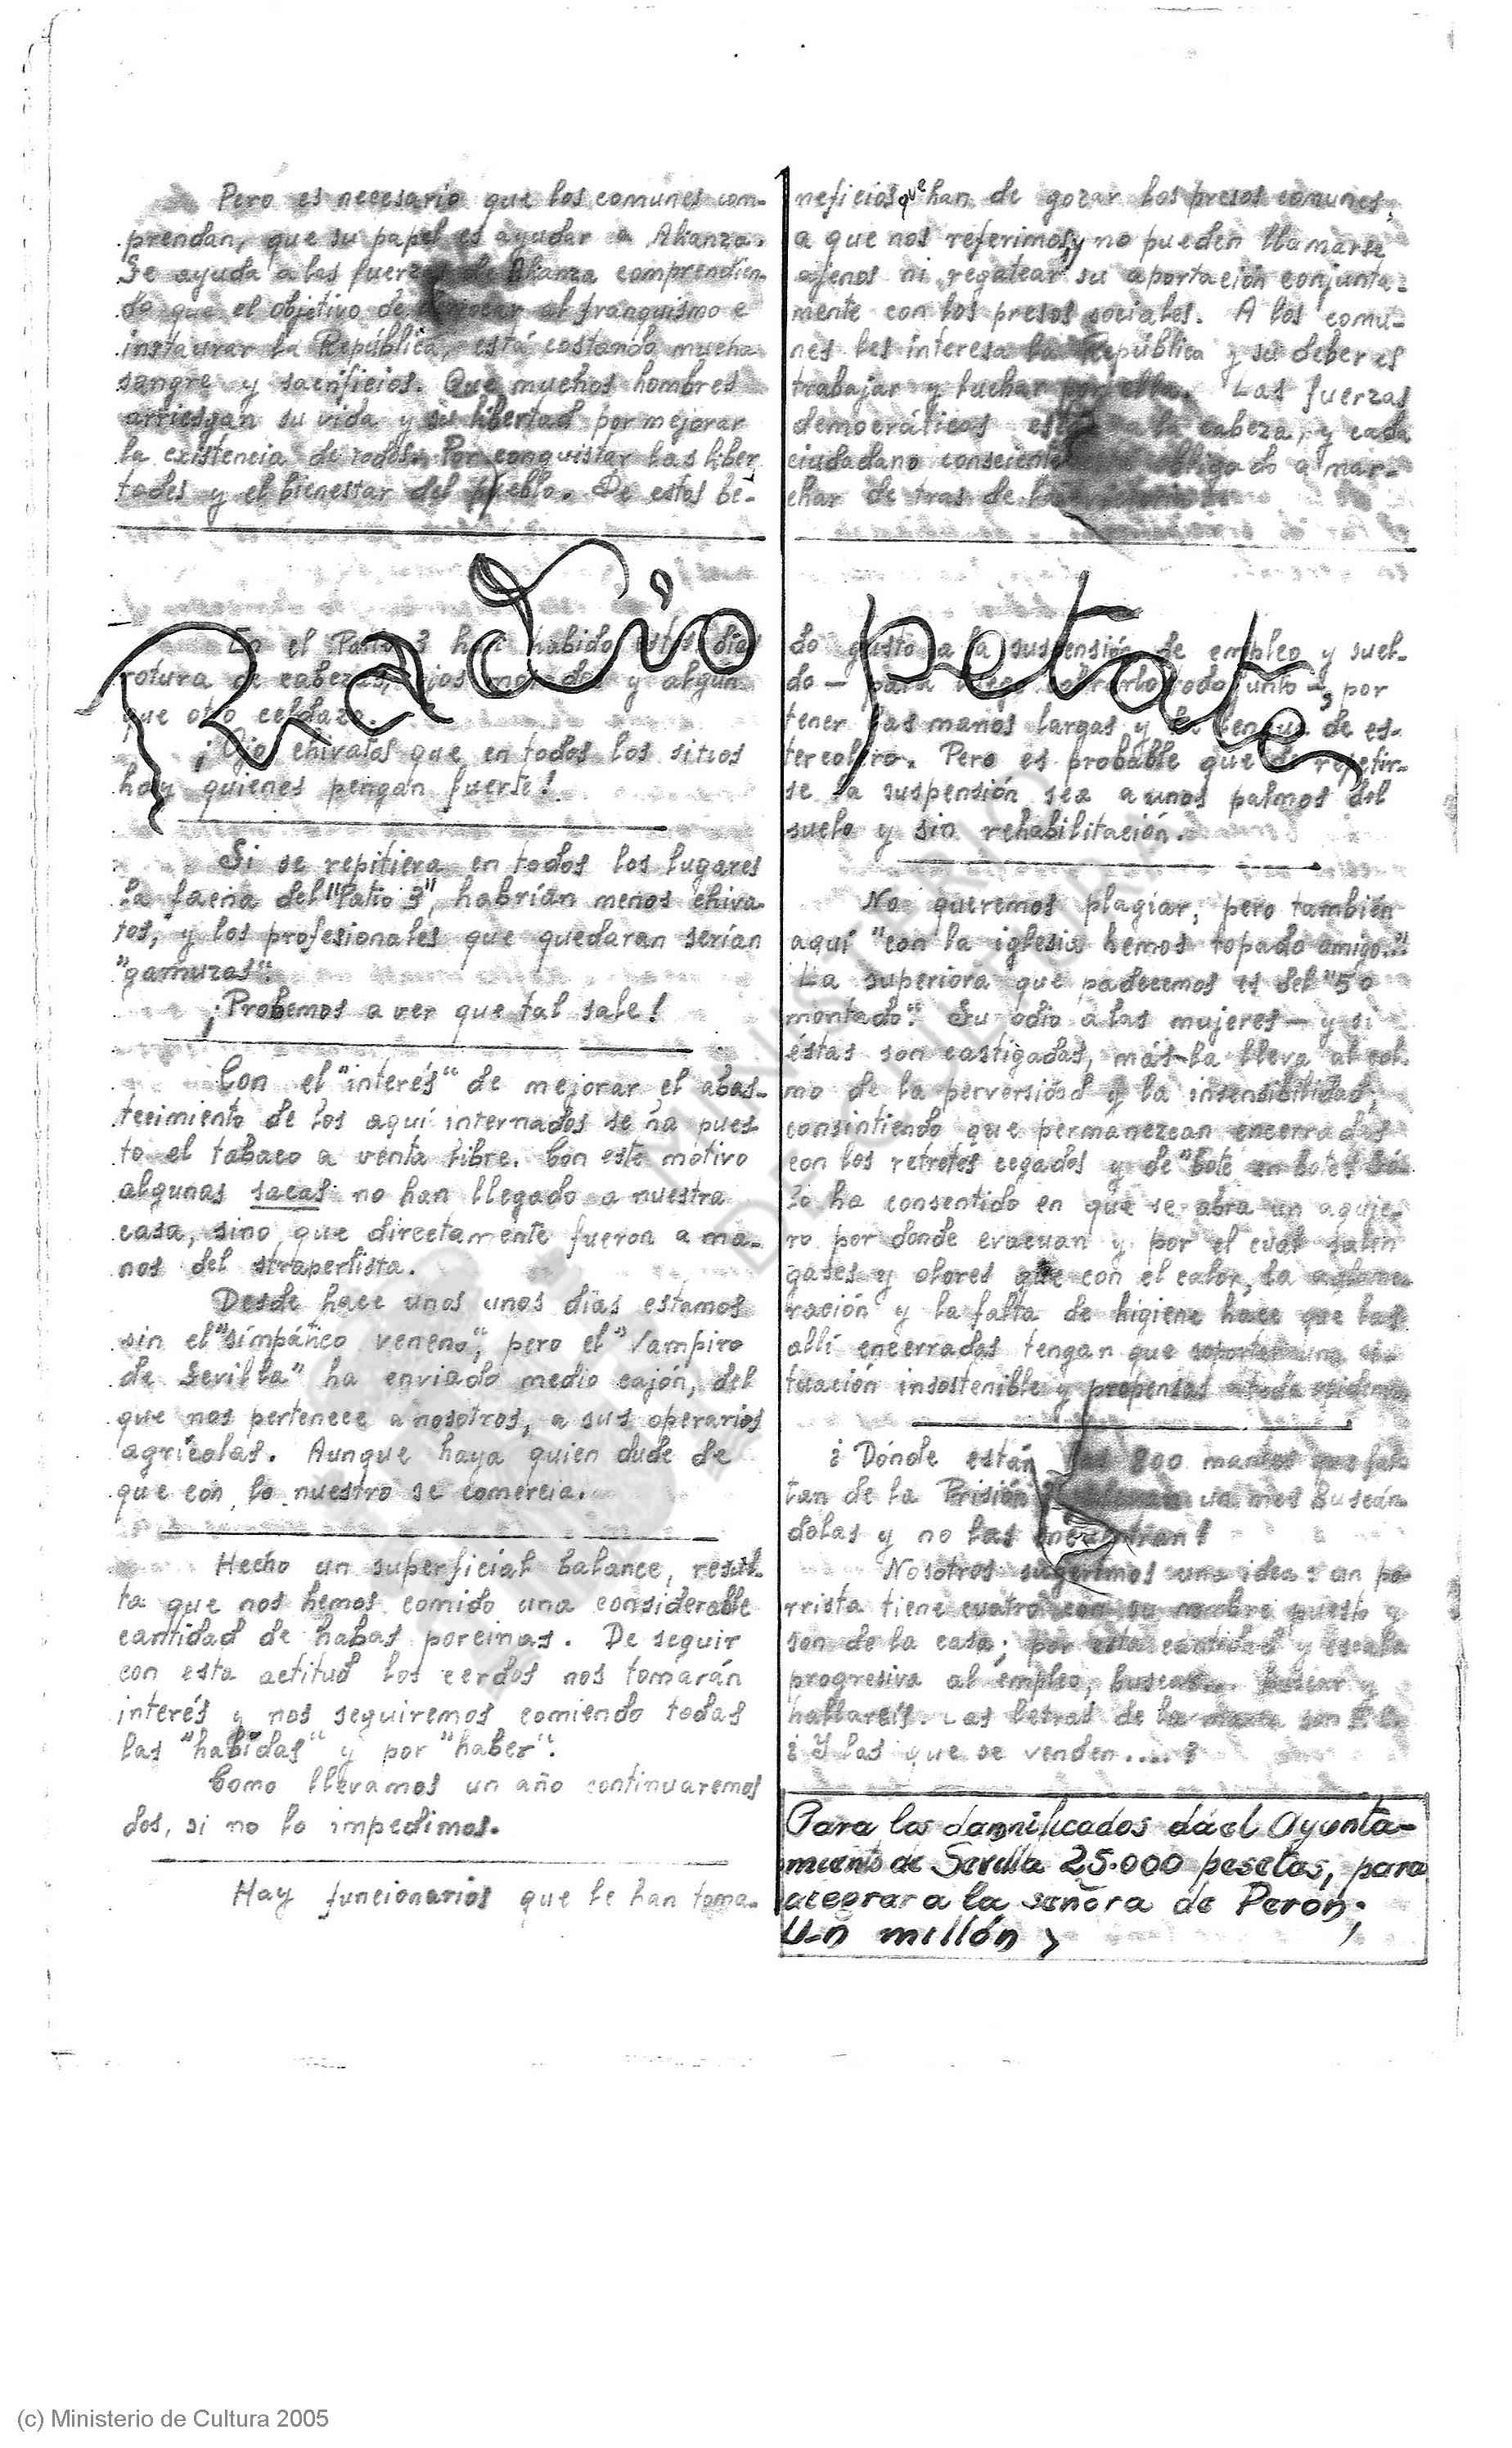 Pero es necesario que los comunes com-
prendan, que su papel es ayudar a Alianza.
Se ayuda a las fuerzas de Alianza comprendien-
do que el objetivo de derrocar al franquismo e
instaurar la República, está costando mucha
sangre y sacrificios. Que muchos hombres
arriesgan su vida y su libertad por mejorar
la existencia de todos. Por conquistar las liber
tades y el bienestar del pueblo. De estos be-
neficios que han de gozar los presos comunes,
a que nos referimos, y no pueden llamarse
ajenos ni regatear su aportación conjunta-
mente con los presos sociales. A los comu-
nes les interesa la República y su deber es
trabajar y luchar por ella. Las fuerzas
democráticas están a la cabeza, y cada
ciudadano consciente obligado a mar-
char de tras de
Radio petate
En el Patio 3 han habido estos días
rotura de cabezas, ojos morados y algún
que otro celdazo.
¡Ojo chivatos que en todos los sitios
hay quienes pengan fuerte!
Si se repitiera en todos los lugares
la faena del "Patio 3", habrían menos chiva
tos, y los profesionales que quedaran serían
"gamuzas".
¡Probemos a ver que tal sale!
Con el "interés" de mejorar el abas-
tecimiento de los aquí internados se ha pues
to el tabaco a venta libre. Con este motivo
algunas sacas no han llegado a nuestra
casa, sino que directamente fueron a ma-
nos del straperlista.
Desde hace unos unos días estamos
sin el "simpático veneno", pero el "Vampiro
de Sevilla" ha enviado medio cajón, del
que nos pertenece a nosotros, a sus operarios
agrícolas. Aunque haya quien dude de
que con lo nuestro se comercia.
Hecho un superficial balance, resul-
ta que nos hemos comido una considerable
cantidad de habas porcinas. De seguir
con esta actitud los cerdos nos tomarán
interés y nos seguiremos comiendo todas
las "habidas" y por "haber".
Como llevamos un año continuaremos
dos, si no lo impedimos.
Hay funcionarios que le han toma-
do gusto a la suspensión de empleo y suel-
do - para luego cobrarlo todo junto -, por
tener las manos largas y la lengua de es-
tercolero. Pero es probable que de repetir-
se la suspensión sea a unos palmos del
suelo y sin rehabilitación.
No queremos plagiar, pero también
aquí "con la iglesia hemos topado amigo."
La superiora que padecemos es del "50
montado". Su odio a las mujeres - y si
éstas son castigadas, más - la lleva al col-
mo de la perversidad y la insensibilidad,
consintiendo que permanezcan encerradas
con los retretes cegados y de "bote en bote". Só-
lo ha consentido en que se abra un aguje-
ro por donde evacuan y por el cual salen
gases y olores que con el calor, la aglome
ración y la falta de higiene hace que las
allí encerradas tengan que soportar una si-
tuación insostenible y propensas a toda epidemia
¿Dónde están las 800 mantas que fal
tan de la Prisión un mes buscán
dolas y no las encuentran?
Nosotros sugerimos una idea: un po
rrista tiene cuatro con su nombre puesto y
son de la casa; por esta cantidad y escala
progresiva al empleo, buscar... buscar y
hallaréis. Las letras de la son
¿Y las que se venden.....?
Para los damnificados dá el Ayunta-
miento de Sevilla 25.000 pesetas, para
aceprar a la señora de Peron;
Un millón >
(c) Ministerio de Cultura 2005